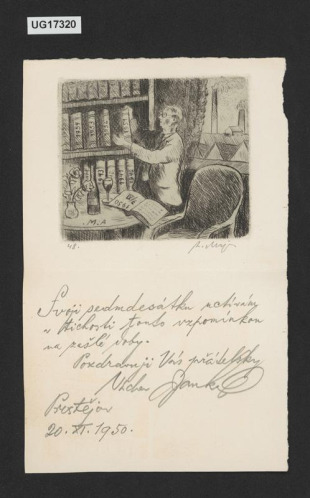 UG17320
M.A
48.
Svoji sedmdesátku uctívám
v tichosti touto vzpomínkou
na prošlé doby.
Pozdravuji Vás přátelsky
Jank
Prostějov
20. XI. 1950.